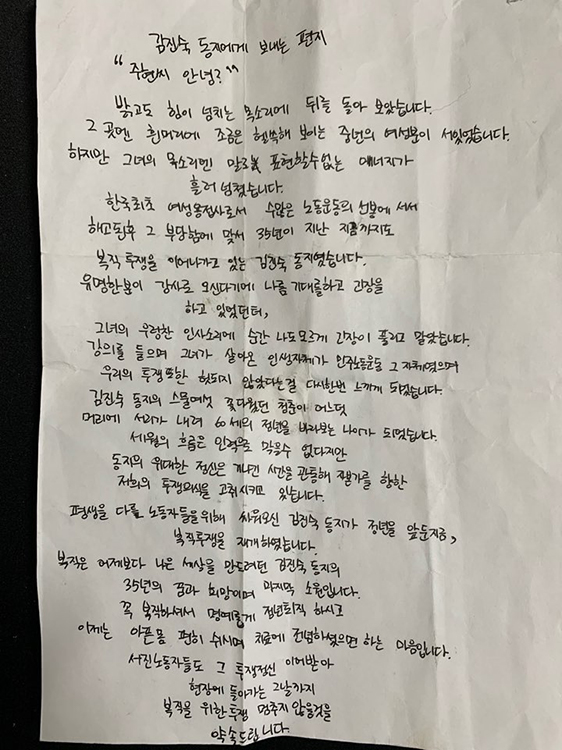 김진숙 동지에게 보내는 편지
"주현씨 안녕?"
밝고도 힘이 넘치는 목소리에 뒤를 돌아 보았습니다.
그 곳엔 흰머리에 조금은 헬쓱해 보이는 중년의 여성분이 서있었습니다.
하지만 그녀의 목소리엔 말로 표현할수없는 에너지가
흘러 넘쳤습니다.
한국최초 여성용접사로서 수많은 노동운동의 선봉에 서서
해고된후 그 부당함에 맞서 35년이 지난 지금까지도
복직 투쟁을 이어나가고 있는 김진숙 동지였습니다.
유명한분이 강사로 오신다기에 나름 기대를하고 긴장을
하고 있었던터,
그녀의 우렁찬 인사소리에 순간 나도모르게 긴장이 풀리고 말았습니다.
강의를 들으며 그녀가 살아온 인생자체가 민주노동운동 그 자체였으며
우리의 투쟁 또한 헛되지 않았다는걸 다시한번 느끼게 되었습니다.
김진숙 동지의 스물여섯 꽃다웠던 청춘이 어느덧
머리에 서리가 내려 60세의 정년을 바라보는 나이가 되었습니다.
세월의 흐름은 인력으로 막을수 없다지만
동지의 위대한 정신은 지나간 시간을 관통해 자본가를 향한
저희의 투쟁의식을 고취시키고 있습니다.
평생을 다른 노동자들을위해 싸워오신 김진숙 동지가 정년을 앞둔지금,
복직투쟁을 재개하였습니다.
복직은 어제보다 나은 세상을 만드려던 김진숙 동지의
35년의 꿈과 희망이며 마지막 소원입니다.
꼭 복직하셔서 명예롭게 정년퇴직 하시고
이제는 아픈몸 편히 쉬시며 치료에 전념하셨으면 하는 마음입니다.
서진노동자들도 그 투쟁정신 이어받아
현장에 돌아가는 그날까지
복직을 위한투쟁 멈추지 않을것을
약속드립니다.